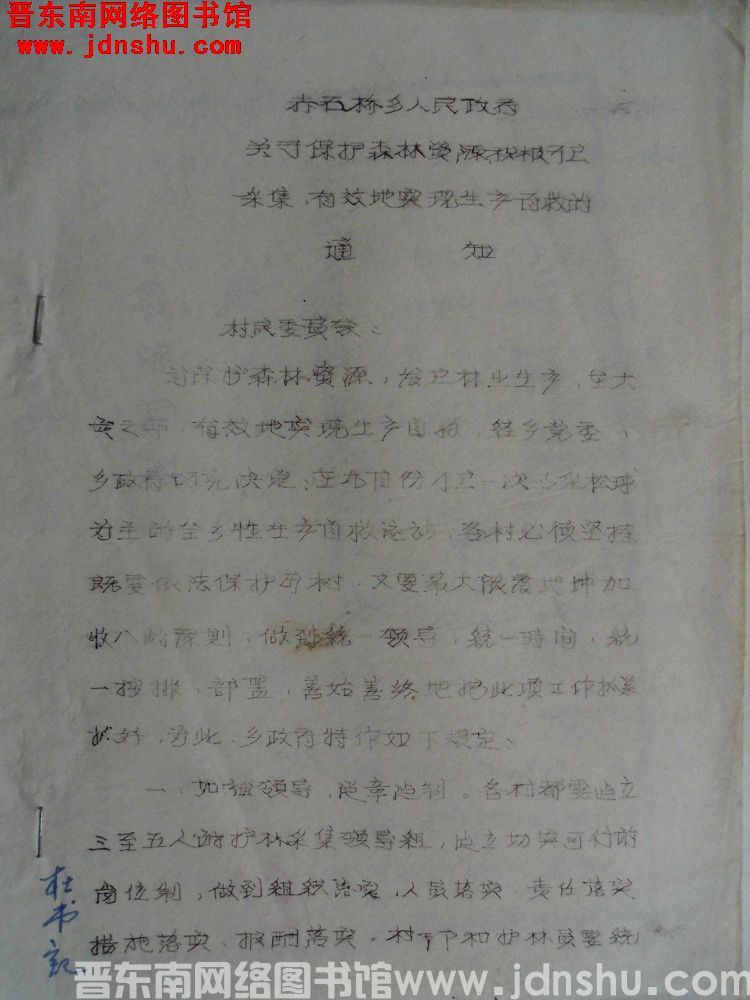 晋东南网络图书馆
www.jdnshu.com
赤石桥乡人民政府
关于保护森林资源积极开展
采集,有效地实现生产自救的
通 知
村民委员会:
为保护森林资源,发展林业生产,在大
灾之年,有效地实现生产自救,经乡党委、
乡政府研究决定:在九月份开展一次以采松球
为主的全乡性生产自救活动,各村必须坚持
既要依法保护母树,又要最大限度地增加
收入的原则,做到统一领导,统一时间,统
一按排,部置,善始善终地把此项工作抓紧
抓好,为此,乡政府特作如下规定:
一、加强领导,建章建制。各村都要建立
三至五人的护林采集领导组,建立切实可行的
岗位制,做到组织落实,人员落实,责任落实
措施落实,报酬落实。村干部和护林员要统
杜书记
晋东南网络图书馆www.jdnshu.com